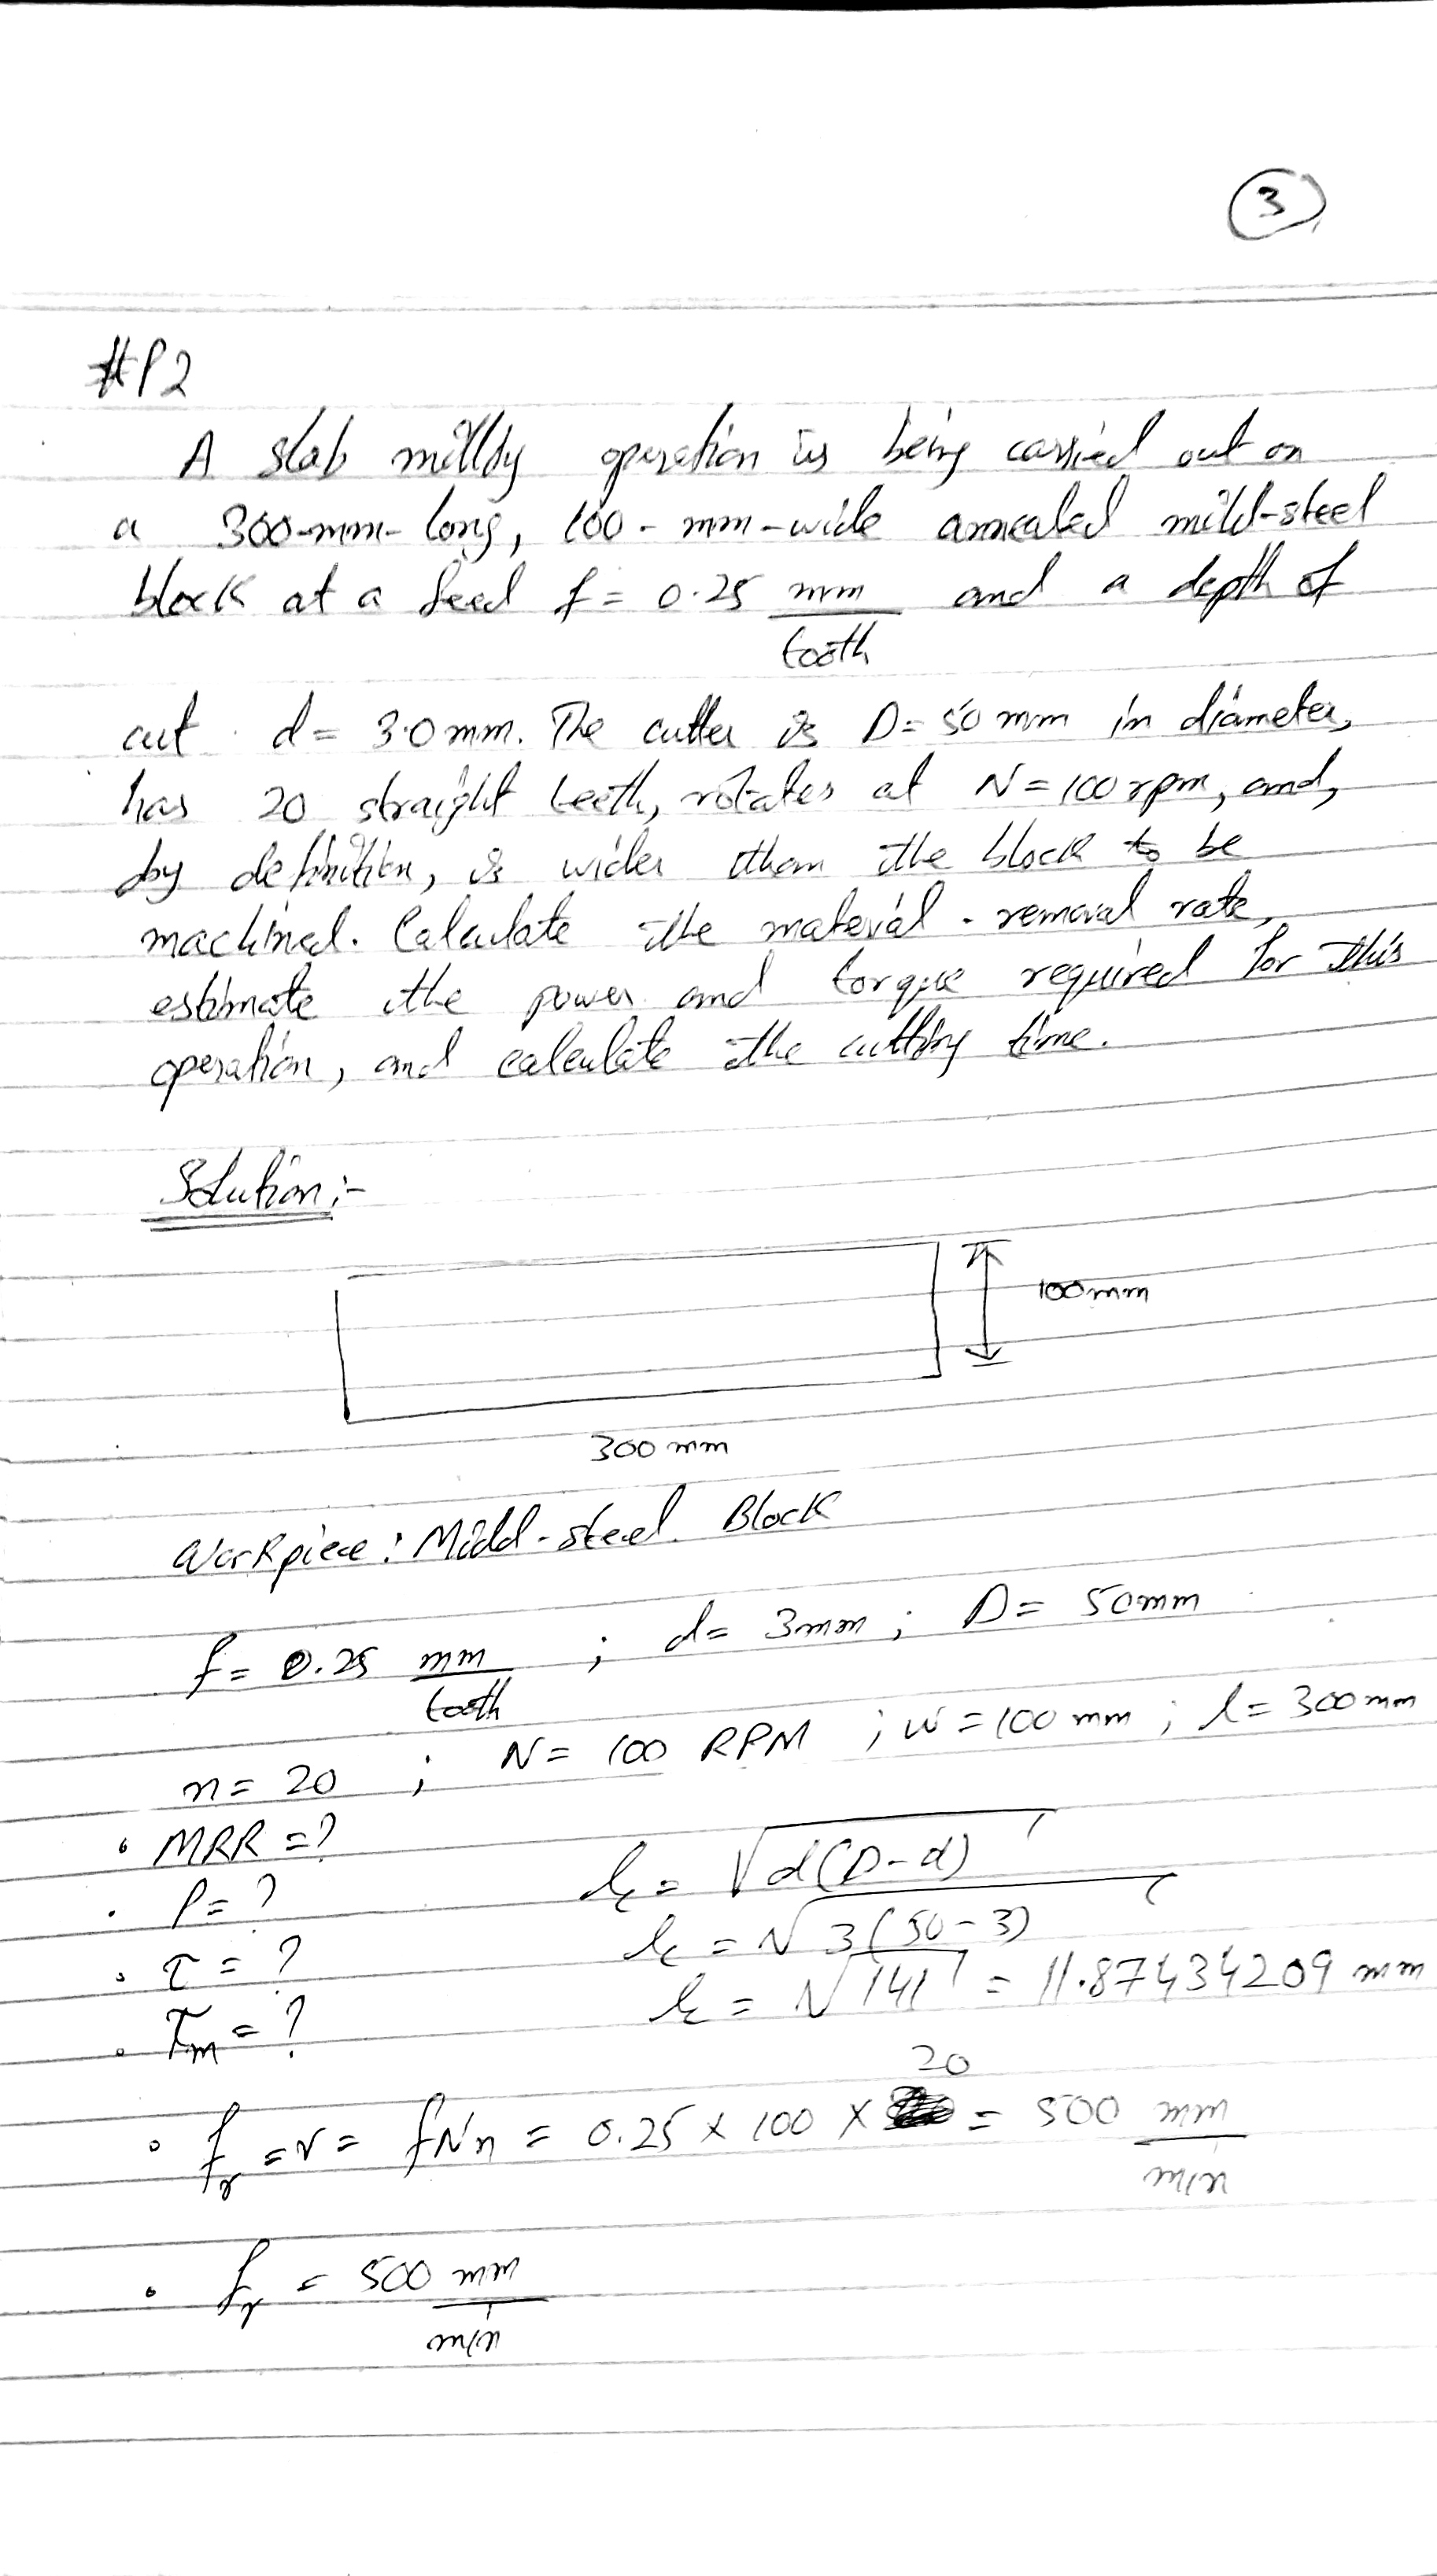 3
#P2
A slab milling operation is being carried out on
a 300-mm-long, 100-mm-wide annealed mild-steel
block at a feed f = 0.25 mm/tooth and a depth of
cut d = 3.0 mm. The cutter is D = 50 mm in diameter,
has 20 straight teeth, rotates at N = 100 rpm, and,
by definition, is wider than the block to be
machined. Calculate the material-removal rate,
estimate the power and torque required for this
operation, and calculate the cutting time.
Solution:-
100mm
300 mm
Workpiece: Mild-steel Block
f = 0.25 mm/tooth ; d = 3mm ; D = 50mm
n = 20 ; N = 100 RPM ; w = 100 mm ; l = 300 mm
• MRR = ?
• P = ?
lc = √d(D-d)
• τ = ?
lc = √3(50-3)
lc = √141 = 11.87434209 mm
• Tm = ?
• fr = v = fNn = 0.25 x 100 x 20 = 500 mm/min
• fr = 500 mm/min